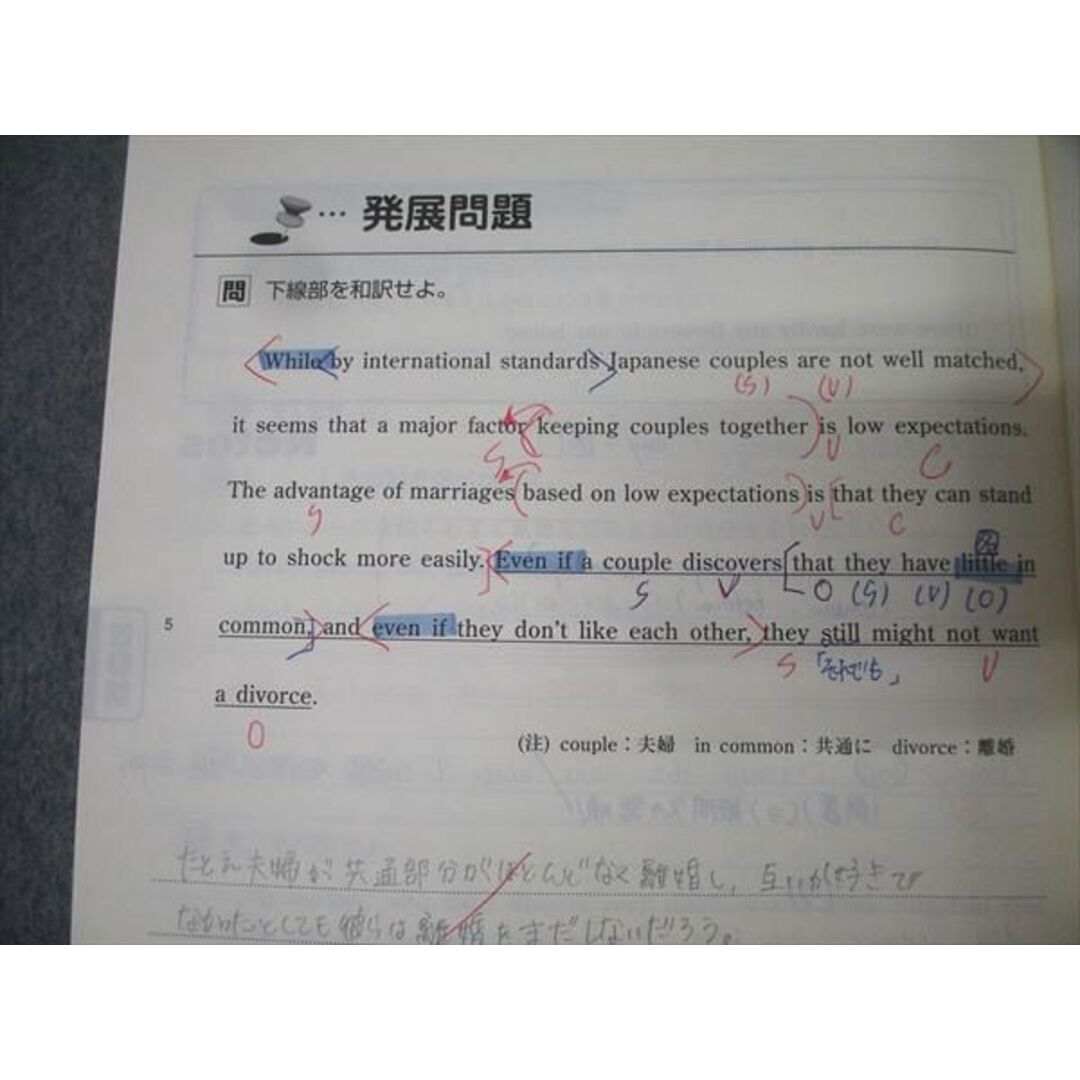 … 発展問題
問 下線部を和訳せよ。
While by international standards Japanese couples are not well matched,
(S) (V)
it seems that a major factor keeping couples together is low expectations.
S V C
The advantage of marriages based on low expectations is that they can stand
S V C
up to shock more easily. Even if a couple discovers that they have little in
S V O (S) (V) (O)
5 common, and even if they don't like each other, they still might not want
S 「それでも」 V
a divorce.
O
(注) couple：夫婦 in common：共通に divorce：離婚
たとえ夫婦が共通部分がほとんどなく離婚し、互いが好きで
なかったとしても彼らは離婚をまだしないだろう。